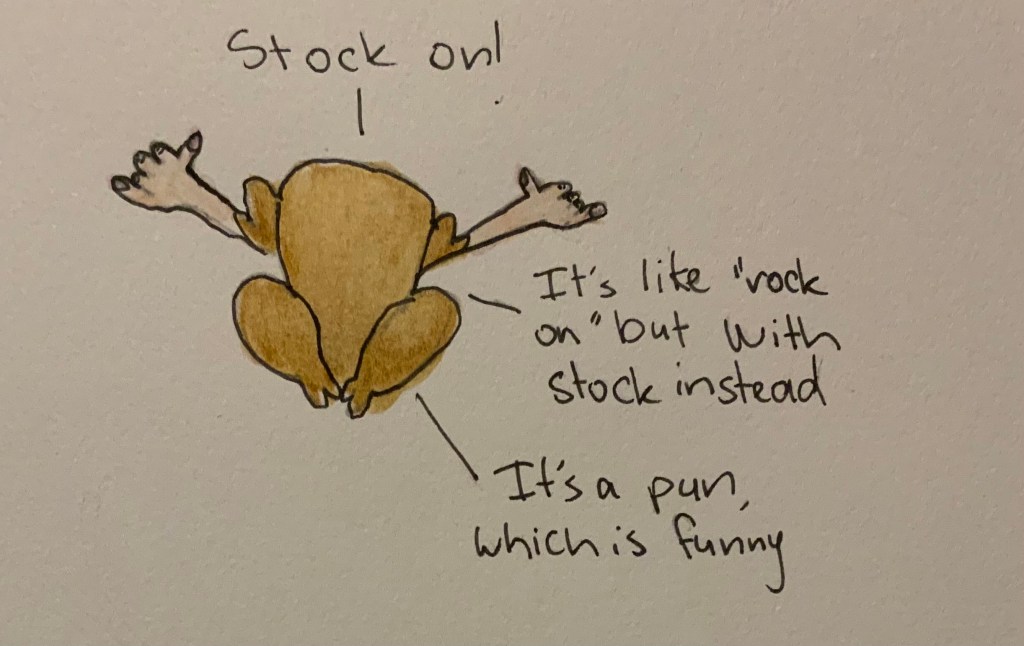 Stock on!
It's like "rock
on" but with
stock instead
It's a pun,
which is funny